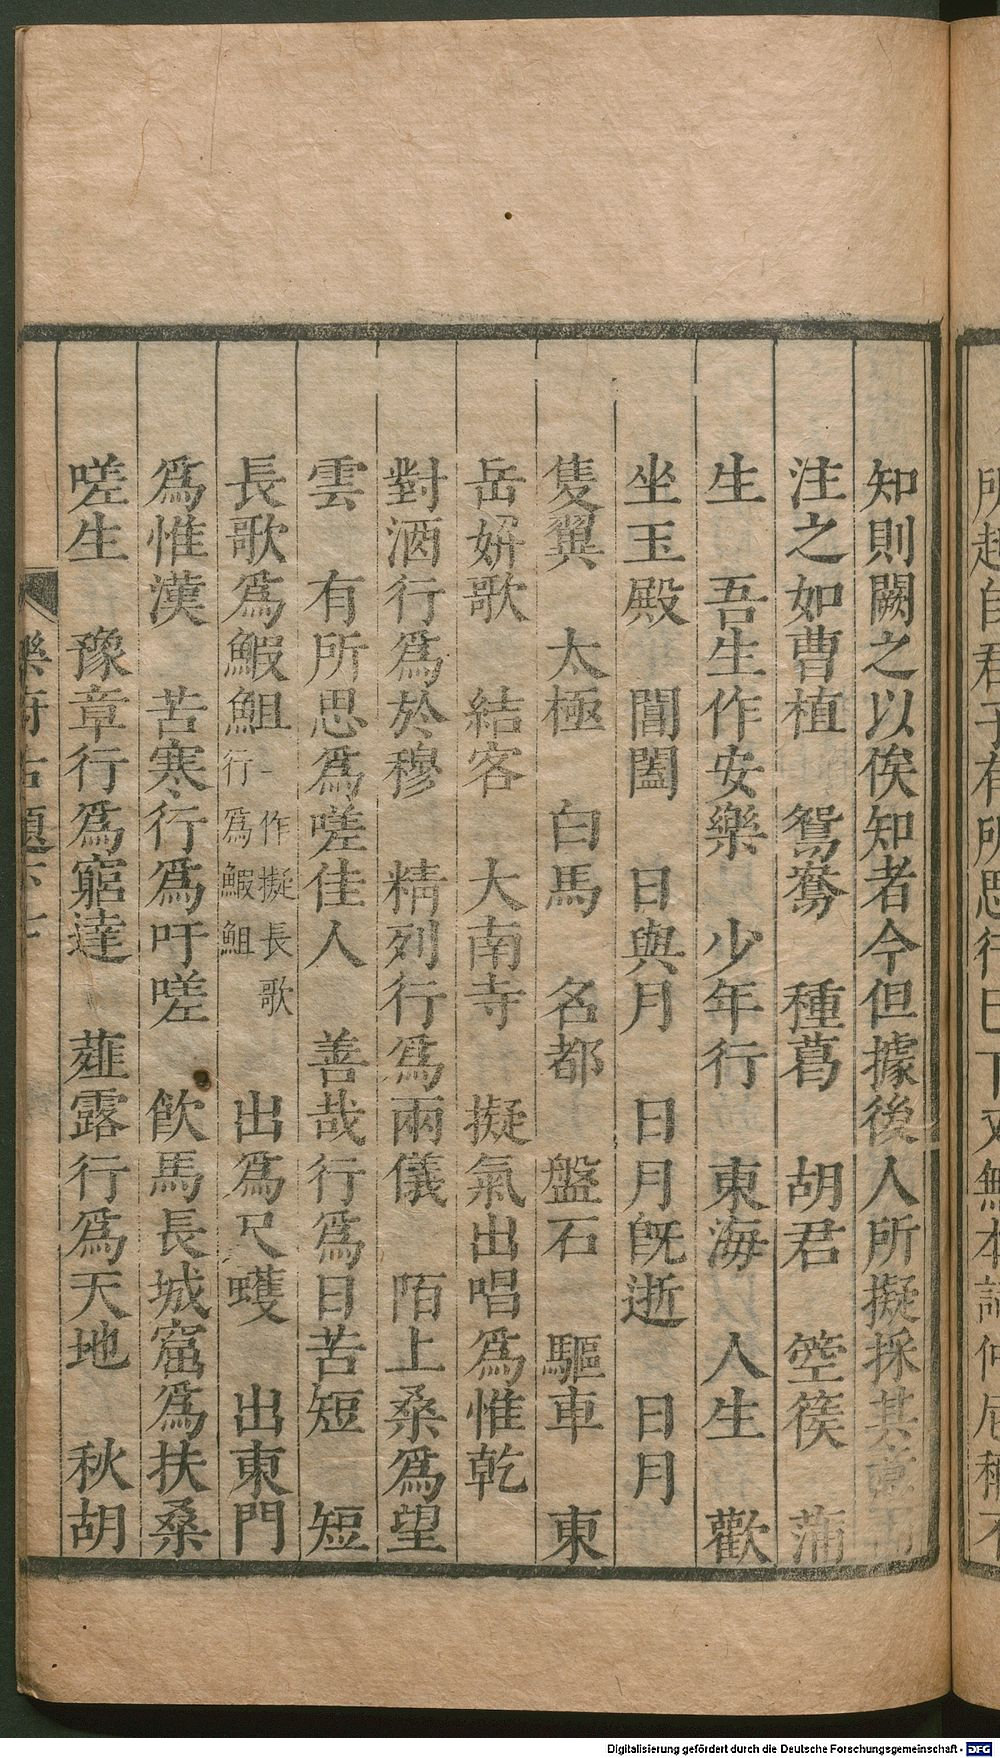 知則闕之以俟知者今但據後人所擬採其意而
注之如曹植　鴛鴦　種葛　胡君　箜篌　蒲
生　吾生作安樂　少年行　東海　人生　歡
坐玉殿　閶闔　日與月　日月旣逝　日月
隻翼　太極　白馬　名都　盤石　驅車　東
岳妍歌　結客　大南寺　擬氣出唱爲惟乾
對酒行爲於穆　精列行爲兩儀　陌上桑爲望
雲　有所思爲嗟佳人　善哉行爲日苦短　短
長歌爲鰕䱇一作擬長歌行爲鰕䱇　出爲尺蠖　出東門
爲惟漢　苦寒行爲吁嗟　飲馬長城窟爲扶桑
嗟生　豫章行爲窮達　薤露行爲天地　秋胡
樂府古題下
所起自君子有所思行巳下又無本詞仲尼稱不
Digitalisierung gefördert durch die Deutsche Forschungsgemeinschaft - DFG